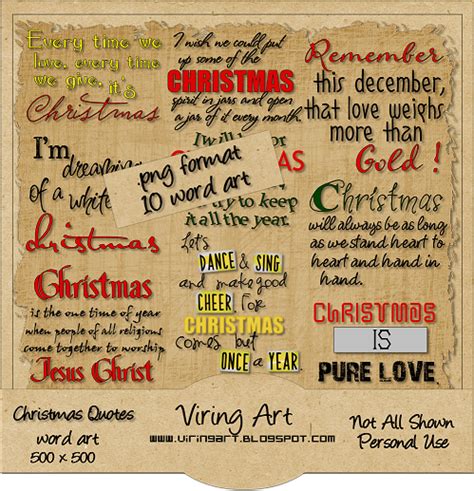 Every time we
love, every time
we give, it's
Christmas
I wish we could put
up some of the
CHRISTMAS
spirit in jars and open
a jar of it every month.
Remember
this december,
that love weighs
more than
Gold !
I'm
dreaming
of a white
christmas
I will
try to keep
it all the year.
.png format
10 word art
Christmas
will always be as long
as we stand heart to
heart and hand in
hand.
Christmas
is the one time of year
when people of all religions
come together to worship
Jesus Christ
Let's
DANCE & SING
and make good
CHEER, For
CHRISTMAS
comes but
ONCE a YEAR.
CHRISTMAS
IS
PURE LOVE
Christmas Quotes
word art
500 x 500
Viring Art
www.viringart.blogspot.com
Not All Shown
Personal Use